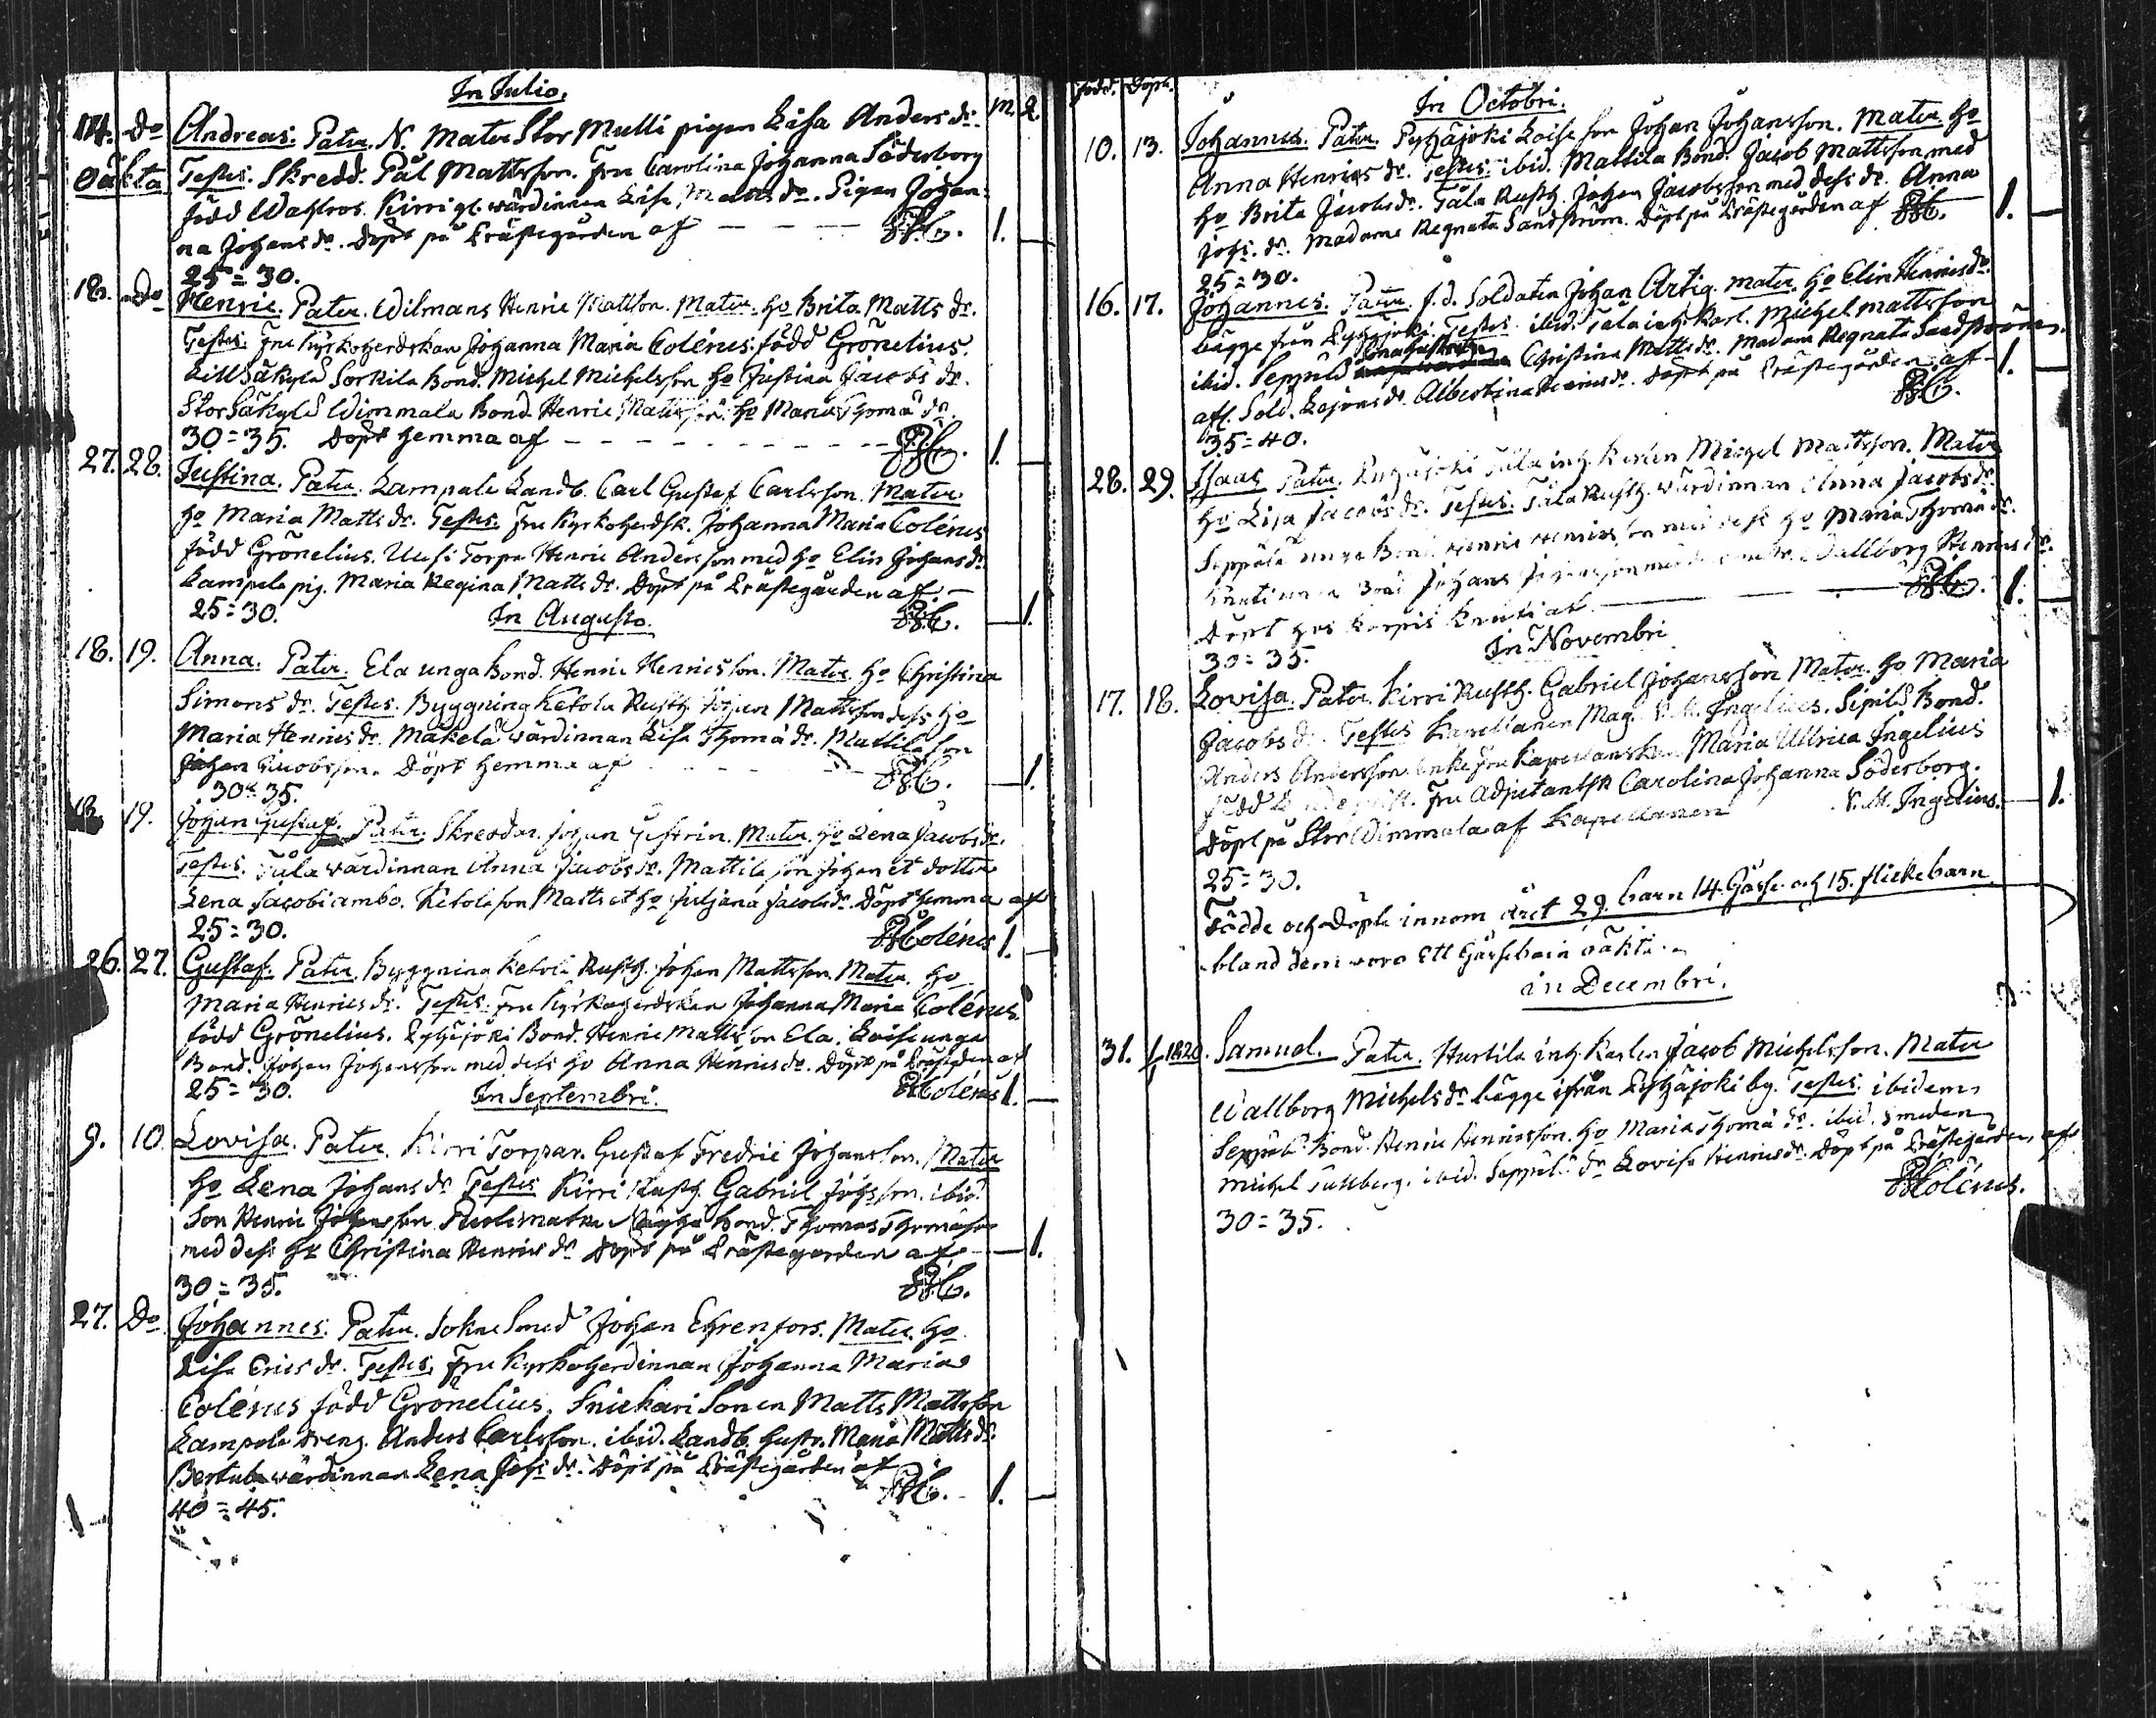 In Julio.
M. Q.
14. Do Andreas. Pater. N. Mater Stor Mulli pigan Lisa Anders dr.
oäkta Testes. Skredd. Pål Mattsson. Fru Carolina Johanna Söderborg
född Wahlros. Kirri gl. wärdinnan Lisa Matts dr. Pigan Johan-
na Johans dr. Döpt på Prästegården af P.C. 1.
25=30.
18. Do Henric. Pater. Wilmans Henric Mattson. Mater. ho Brita Matts dr.
Testes. Fru Kyrkoherdskan Johanna Maria Colénus. född Grönelius.
LillSäkylä Sorkila Bond. Michel Michelsson ho Justina Jacobs dr.
StorSäkylä Wimmala Bond. Henric Mattsson. ho Maria Thomæ dr.
30=35. Döpt hemma af P.C. 1.
27. 28. Justina. Pater. Lampola Landb. Carl Gustaf Carlsson. Mater
ho Maria Matts dr. Testes. Fru Kyrkoherdsk. Johanna Maria Colénus
född Grönelius. Uusi Torpa Henric Andersson med ho Elin Johans dr
Lampola pig. Maria Regina Matts dr. Döpt på Prästegården af.
25=30. In Augusto. P.C. 1.
18. 19. Anna. Pater. Ela unga Bond. Henric Henricsson. Mater ho Christina
Simons dr. Testes. Byggning Ketola Rusth. Johan Mattsson dess ho
Maria Henrics dr. Mäkelä wärdinnan Lisa Thomæ dr. Mattila son
Johan Jacobsson. Döpt hemma af P.C. 1.
30=35.
18. 19. Johan Gustaf. Pater. Skreddar. Johan Gestrin. Mater. ho Lena Jacobs dr.
Testes. Tula wärdinnan Anna Jacobs dr. Mattila son Johan et dotter
Lena Jacobi ambo. Ketola son Matts et ho Juljana Jacobs dr. Döpt hemma af
25=30. P Colénus 1.
26. 27. Gustaf. Pater. Byggning Ketola Rusth. Johan Mattsson. Mater. ho
Maria Henrics dr. Testes. Fru Kyrkoherdskan Johanna Maria Colénus.
född Grönelius. Pyhäjoki Bond. Henric Mattsson Ela. Loise unga
Bond. Johan Johansson med dess ho Anna Henrics dr. Döpt på Prästgården af
25=30. In Septembri. P Colénus 1.
9. 10. Lovisa. Pater. Kirri Torpar. Gustaf Fredric Johansson. Mater
ho Lena Johans dr Testes Kirri Rusth. Gabriel Johsson. ibid.
son Henric Johansson Bond. Thomas Thomasson
med dess ho Christina Henrics dr Döpt på Prästegården af 1.
30=35. P.C.
27. Do Johannes. Pater. Sokne Smed Johan Ehrenfors. Mater. ho
Lisa Erics dr. Testes. Fru Kyrkoherdinnan Johanna Maria
Colénus född Grönelius. Snickari Sonen Matts Mattsson
Lampola dreng. Anders Carlsson. ibid. Landb. hustr. Maria Matts dr.
Bertula wärdinnan Lena Johs dr. Döpt på Prästegården af
40=45. P.C. 1.
född. Döpt.
In Octobri.
10. 13. Johannes. Pater. Pyhäjoki Loise son Johan Johansson. Mater. ho
Anna Henrics dr. Testes. ibid. Mattila Bond. Jacob Mattsson med
ho Brita Jacobs dr. Tåla Rusth. Johan Jacobsson med dess dr. Anna
Johs. dr. Madame Regnata Sandström. Döpt på Prästegården af P.C. 1.
25=30.
16. 17. Johannes. Pater. f.d. Soldaten Johan Artig. Mater. ho Elin Henrics dr.
bägge från Pyhäjoki. Testes. ibid. Tåla inh. Karl. Michel Mattsson
ibid. Seppälä Christina Matts dr. Madam Regnata Sandström.
afl. Sold. Lejons dr. Albertina Henrics dr. Döpt på Prästegården af 1.
35=40. P.C.
28. 29. Isaac Pater. Pyhäjoki Tåla inh. Karlen Michel Mattsson. Mater
ho Lisa Jacobs dr. Testes. Tåla Rusth. wärdinnan Anna Jacobs dr.
Seppälä unga Bond. Henric Henricsson med dess ho Maria Thomæ dr.
Bond Johans Wallborg Henrics dr.
Döpt hos af P.C. 1.
30=35. In Novembri
17. 18. Lovisa. Pater. Kirri Rusth. Gabriel Johansson Mater. ho Maria
Jacobs dr. Testes Kapellanen Mag. Ingelius. Sipilä Bond.
Anders Andersson. Enkefru Kapellanskan Maria Ullrica Ingelius
född Fru Adjutantsk Carolina Johanna Söderborg.
Döpt på Stor Wimmala af Kapellanen Ingelius. 1.
25=30.
Födde och Döpte innom året 29. barn 14. Gosse och 15. flickebarn
bland dem voro Ett Gossebarn oäkta.
in Decembri.
31. 1/1 1820. Samuel. Pater. Hurtila inh. Karlen Jacob Michelsson. Mater
Wallborg Michels dr bägge ifrån Pyhäjoki by. Testes. ibidem
Seppälä Bond. Henric Henricsson. ho Maria Thomæ dr. ibid. Smeden
Michel ibid. Seppälä dr Lovisa Henrics dr. Döpt på Prästegården af
P Colénus.
30=35.